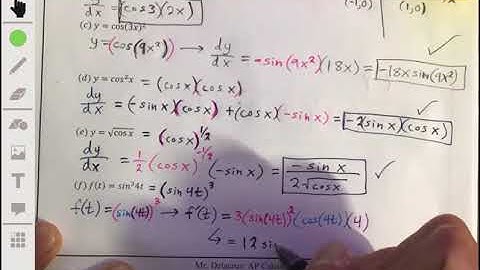 dy/dx = (cos3)(2x) (-1,0) (1,0)
(c) y = cos(3x)²
y = (cos(9x²)) → dy/dx = -sin(9x²)(18x) = -18x sin(9x²) ✓
(d) y = cos²x = (cosx)(cosx)
dy/dx = (-sinx)(cosx) + (cosx)(-sinx) = -2sinx)(cosx) ✓
(e) y = √cosx = (cosx)^1/2
dy/dx = 1/2(cosx)^-1/2 (-sinx) = -sinx/2√cosx ✓
(f) f(t) = sin³4t = (sin4t)³
f(t) = (sin(4t))³ → f'(t) = 3(sin(4t))²(cos(4t))(4)
↳ = 12 sin